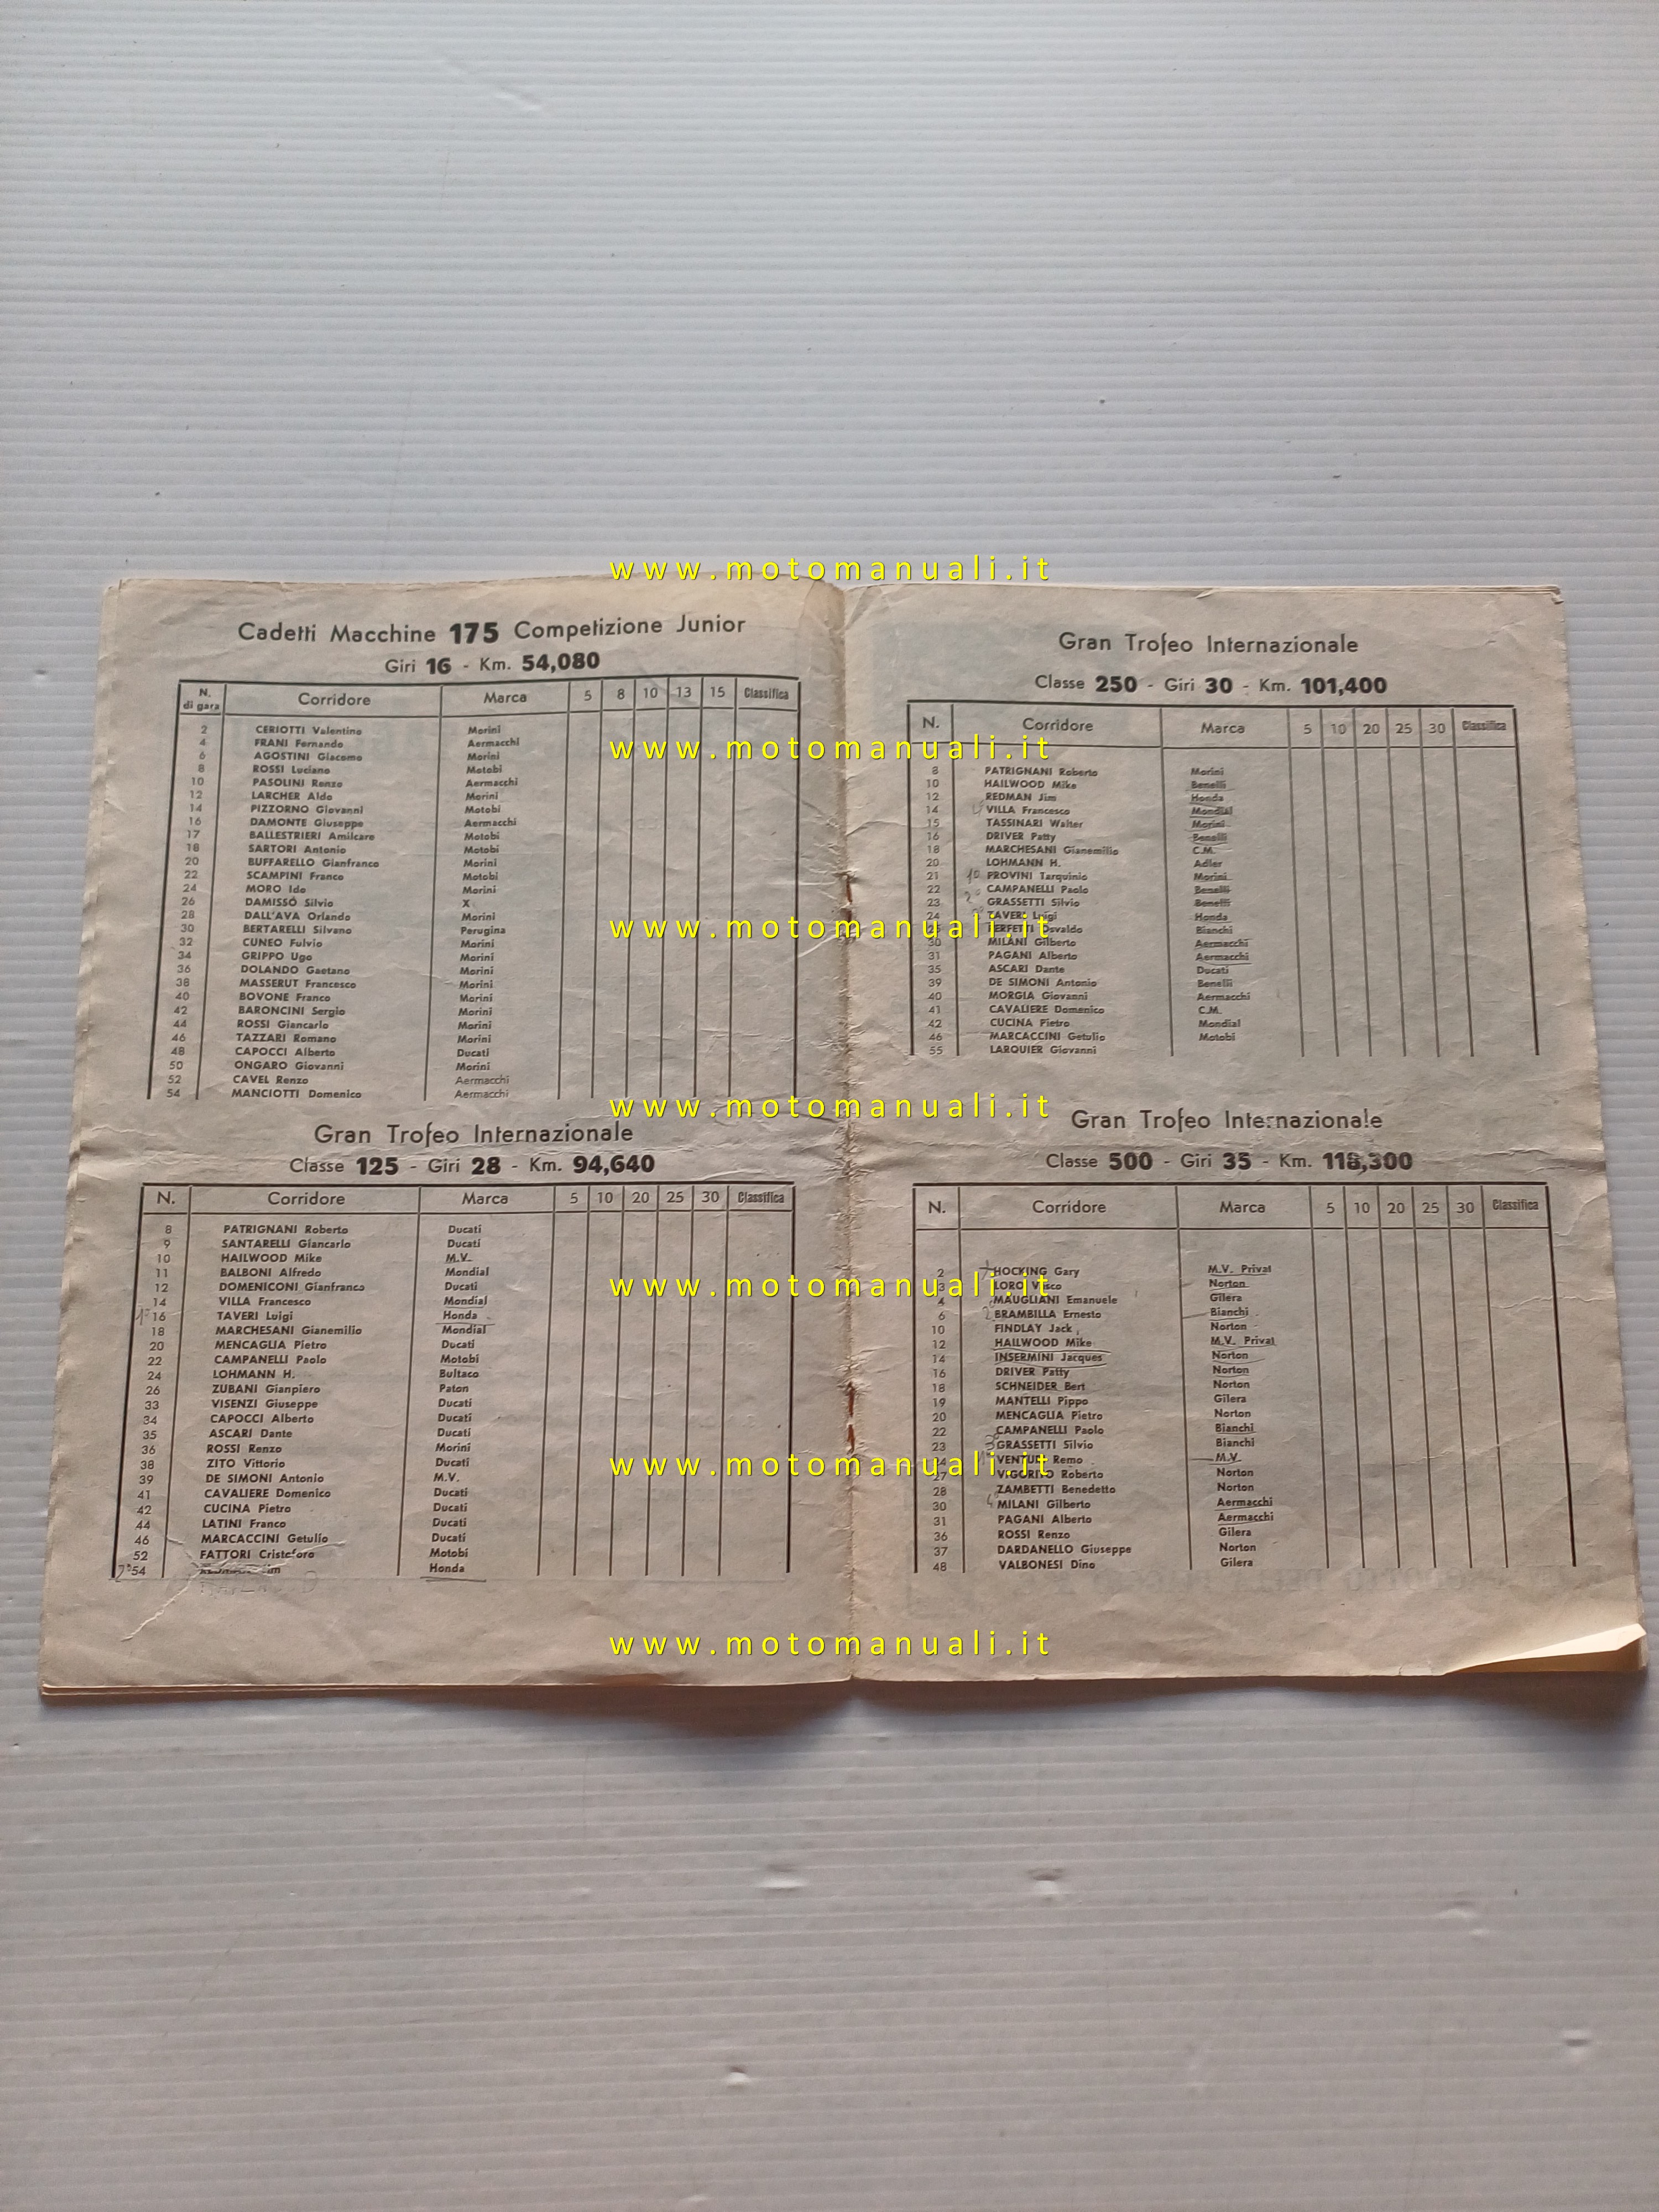 www.motomanuali.it
Cadetti Macchine 175 Competizione Junior
Giri 16 - Km. 54,080
N. di gara Corridore Marca 5 8 10 13 15 Classifica
2 CERIOTTI Valentino Morini
4 FRANI Fernando Aermacchi
6 AGOSTINI Giacomo Morini
8 ROSSI Luciano Motobi
10 PASOLINI Renzo Aermacchi
12 LARCHER Aldo Morini
14 PIZZORNO Giovanni Motobi
16 DAMONTE Giuseppe Aermacchi
17 BALLESTRIERI Amilcare Motobi
18 SARTORI Antonio Motobi
20 BUFFARELLO Gianfranco Morini
22 SCAMPINI Franco Motobi
24 MORO Ido Morini
26 DAMISSO Silvio X
28 DALL'AVA Orlando Morini
30 BERTARELLI Silvano Perugina
32 CUNEO Fulvio Morini
34 GRIPPO Ugo Morini
36 DOLANDO Gaetano Morini
38 MASSERUT Francesco Morini
40 BOVONE Franco Morini
42 BARONCINI Sergio Morini
44 ROSSI Giancarlo Morini
46 TAZZARI Romano Morini
48 CAPOCCI Alberto Ducati
50 ONGARO Giovanni Morini
52 CAVEL Renzo Aermacchi
54 MANCIOTTI Domenico Aermacchi
Gran Trofeo Internazionale
Classe 125 - Giri 28 - Km. 94,640
N. Corridore Marca 5 10 20 25 30 Classifica
8 PATRIGNANI Roberto Ducati
9 SANTARELLI Giancarlo Ducati
10 HAILWOOD Mike M.V.
11 BALBONI Alfredo Mondial
12 DOMENICONI Gianfranco Ducati
14 VILLA Francesco Mondial
16 TAVERI Luigi Honda
18 MARCHESANI Gianemilio Mondial
20 MENCAGLIA Pietro Ducati
22 CAMPANELLI Paolo Motobi
24 LOHMANN H. Bultaco
26 ZUBANI Gianpiero Paton
33 VISENZI Giuseppe Ducati
34 CAPOCCI Alberto Ducati
35 ASCARI Dante Ducati
36 ROSSI Renzo Morini
38 ZITO Vittorio Ducati
39 DE SIMONI Antonio M.V.
41 CAVALIERE Domenico Ducati
42 CUCINA Pietro Ducati
44 LATINI Franco Ducati
46 MARCACCINI Getulio Ducati
52 FATTORI Cristoforo Motobi
54 Honda
Gran Trofeo Internazionale
Classe 250 - Giri 30 - Km. 101,400
N. Corridore Marca 5 10 20 25 30 Classifica
www.motomanuali.it
8 PATRIGNANI Roberto Morini
10 HAILWOOD Mike Benelli
12 REDMAN Jim Honda
14 VILLA Francesco Mondial
15 TASSINARI Walter Morini
16 DRIVER Patty Benelli
18 MARCHESANI Gianemilio C.M.
20 LOHMANN H. Adler
21 PROVINI Tarquinio Morini
22 CAMPANELLI Paolo Benelli
23 GRASSETTI Silvio Benelli
24 TAVERI Luigi Honda
www.motomanuali.it
Bianchi
30 MILANI Gilberto Aermacchi
31 PAGANI Alberto Aermacchi
35 ASCARI Dante Ducati
39 DE SIMONI Antonio Benelli
40 MORGIA Giovanni Aermacchi
41 CAVALIERE Domenico C.M.
42 CUCINA Pietro Mondial
46 MARCACCINI Getulio Motobi
55 LARQUIER Giovanni
www.motomanuali.it
Gran Trofeo Internazionale
Classe 500 - Giri 35 - Km. 118,300
N. Corridore Marca 5 10 20 25 30 Classifica
2 HOCKING Gary M.V. Privat
3 LORO Vasco Norton
www.motomanuali.it
4 MAUGLIANI Emanuele Gilera
6 BRAMBILLA Ernesto Bianchi
10 FINDLAY Jack Norton
12 HAILWOOD Mike M.V. Privat
14 INSERMINI Jacques Norton
16 DRIVER Patty Norton
18 SCHNEIDER Bert Norton
19 MANTELLI Pippo Gilera
20 MENCAGLIA Pietro Norton
22 CAMPANELLI Paolo Bianchi
23 GRASSETTI Silvio Bianchi
24 VENTURI Remo M.V.
www.motomanuali.it
27 VIGORITO Roberto Norton
28 ZAMBETTI Benedetto Norton
30 MILANI Gilberto Aermacchi
31 PAGANI Alberto Aermacchi
36 ROSSI Renzo Gilera
37 DARDANELLO Giuseppe Norton
48 VALBONESI Dino Gilera
www.motomanuali.it